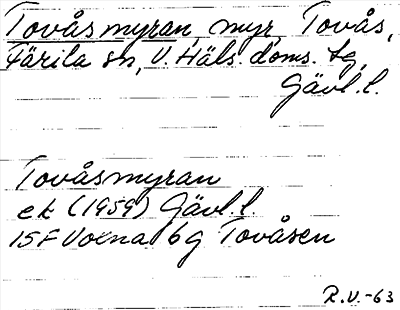 Tovåsmyran myr, Tovås,
Färila sn, V. Häls. doms. tg,
Gävl. l.
Tovåsmyran
ek (1959) Gävl. l.
15F Voxna 6g Tovåsen
R.V.-63